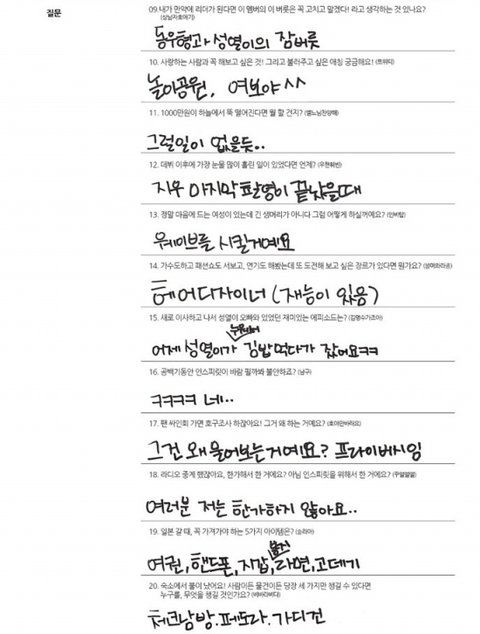 질문
09.내가 만약에 리더가 된다면 이 멤버의 이 버릇은 꼭 고치고 말겠다! 라고 생각하는 것 있나요?
(상남자호애기)
동우형과 성열이의 잠버릇
10. 사랑하는 사람과 꼭 해보고 싶은 것! 그리고 불러주고 싶은 애칭 궁금해요! (트위티)
놀이공원, 여보야 ^^
11. 1000만원이 하늘에서 뚝 떨어진다면 뭘 할 건지? (엘느님찬양해)
그럴일이 없을듯..
12. 데뷔 이후에 가장 눈물 많이 흘린 일이 있었다면 언제? (우현훠빈)
지우 마지막 촬영이 끝났을때
13. 정말 마음에 드는 여성이 있는데 긴 생머리가 아니다 그럼 어떻게 하실꺼예요? (인비탈)
웨이브를 시킬거예요
14. 가수도하고 패션쇼도 서보고, 연기도 해봤는데 또 도전해 보고 싶은 장르가 있다면 뭔가요?
헤어디자이너 (재능이 있음)
15. 새로 이사하고 나서 성열이 오빠와 있었던 재미있는 에피소드는? (김명수가조아)
누워서
어제 성열이가 김밥먹다가 잤어요ㅋㅋ
16. 공백기동안 인스피릿이 바람 필까봐 불안하죠? (남구)
ㅋㅋㅋㅋ 네..
17. 팬 싸인회 가면 호구조사 하잖아요! 그거 왜 하는 거예요? (호야만바라요)
그건 왜 물어보는거예요? 프라이버시임
18. 라디오 중계 했잖아요, 한가해서 한 거예요? 아님 인스피릿을 위해서 한 거예요? (주얼얼얼)
여러분 저는 한가하지 않아요..
19. 일본 갈 때, 꼭 가져가야 하는 5가지 아이템은? (소라아)
여권,핸드폰,지갑,라면,고데기
20. 숙소에서 불이 났어요! 사람이든 물건이든 당장 세 가지만 챙길 수 있다면
누구를, 무엇을 챙길 것인가요? (바바라바다)
체크남방.페도라.가디건